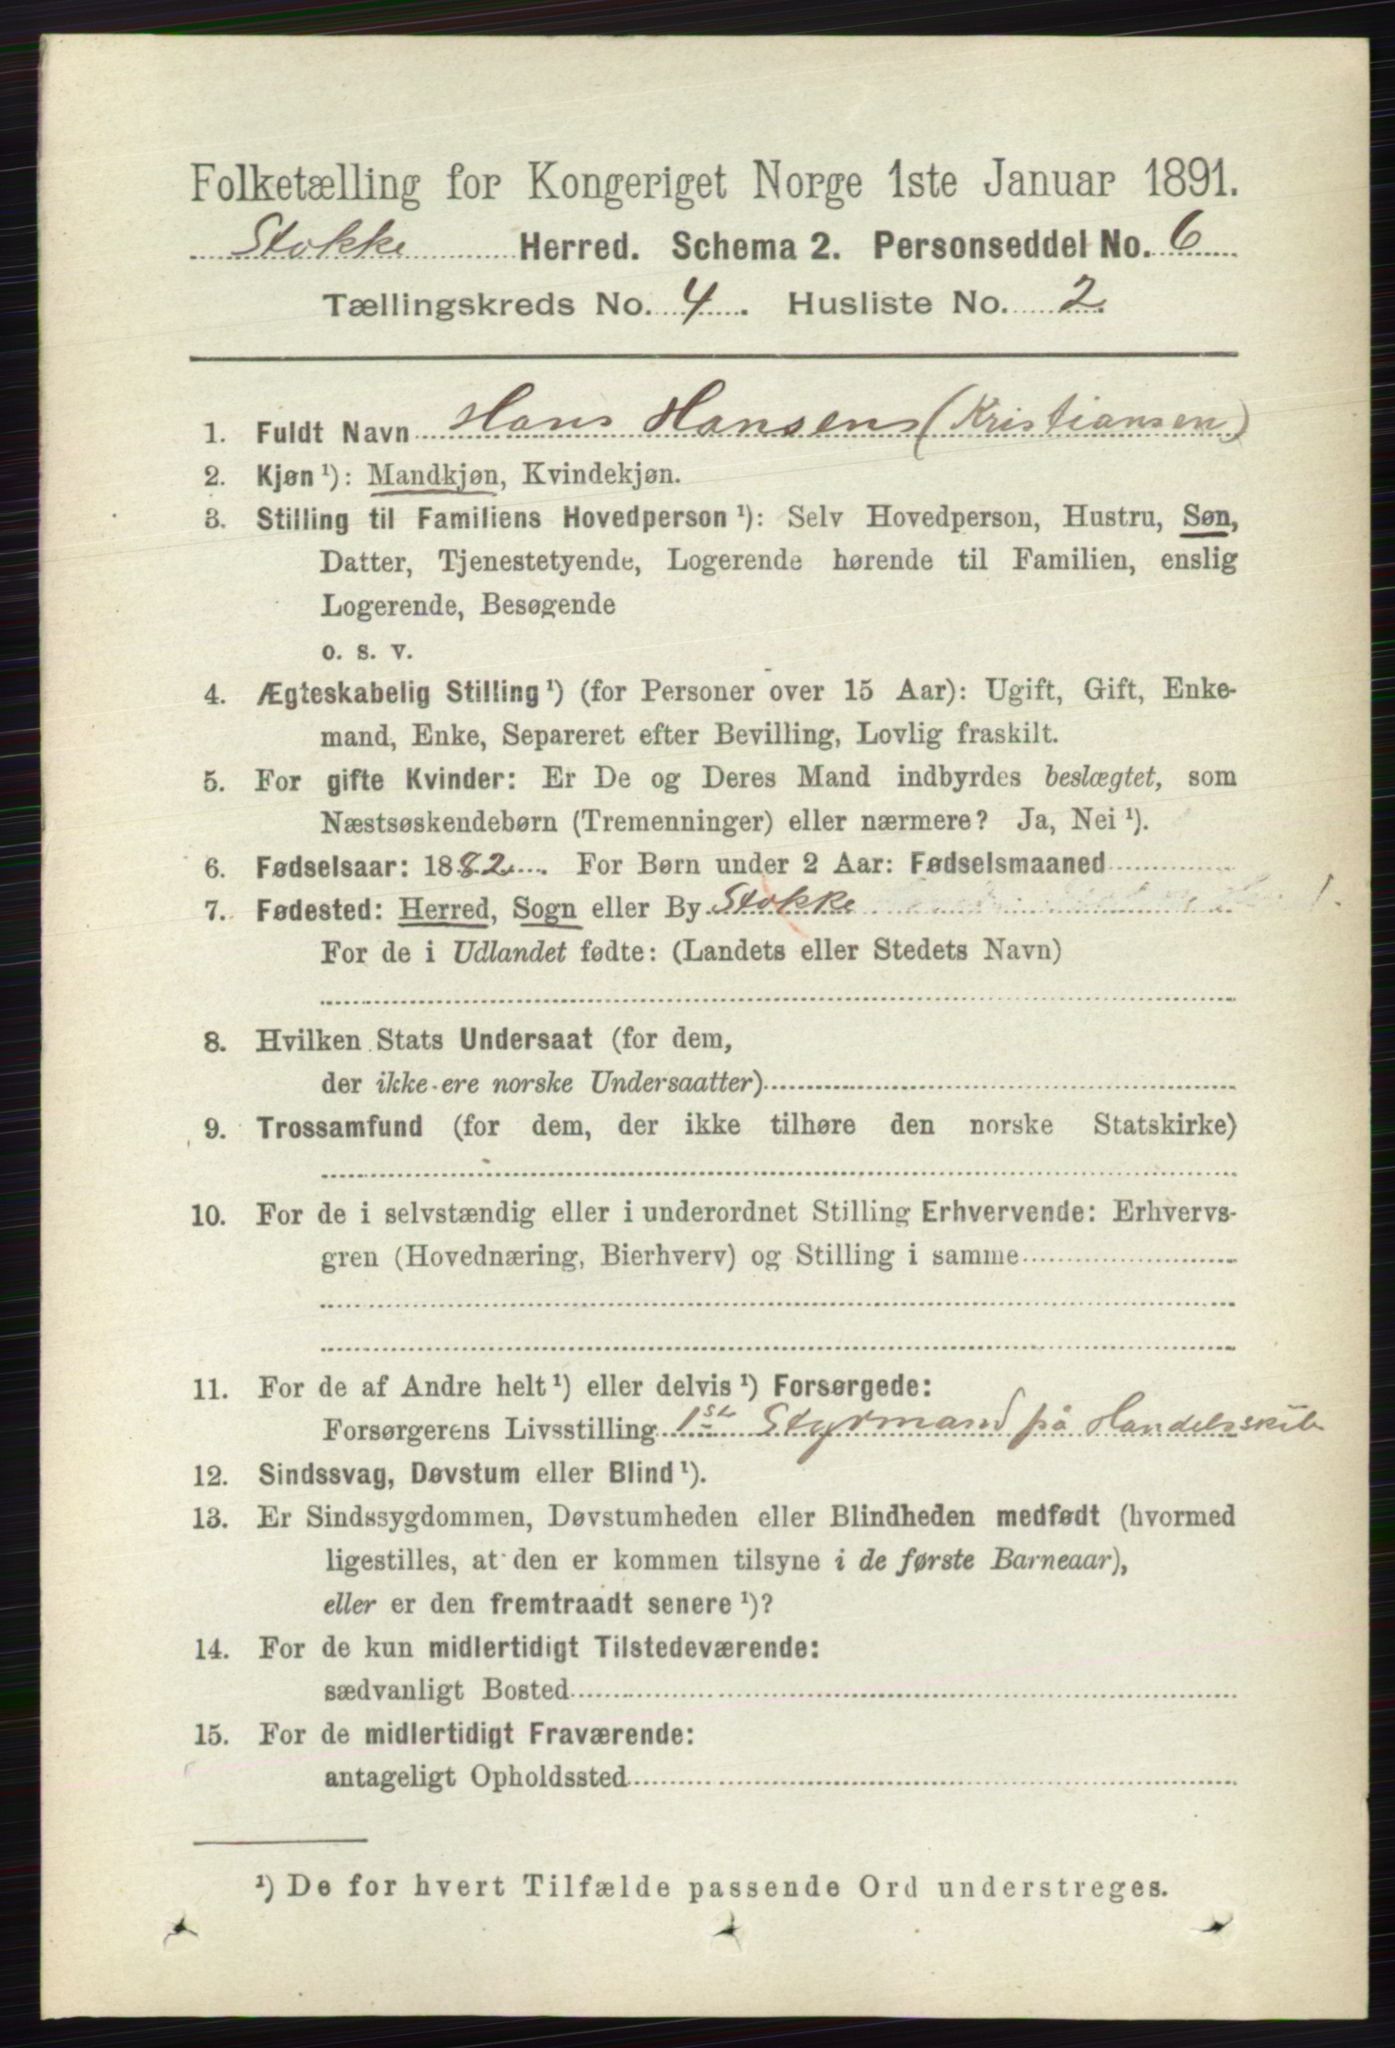 Folketælling for Kongeriget Norge 1ste Januar 1891.
Stokke Herred. Schema 2. Personseddel No. 6
Tællingskreds No. 4. Husliste No. 2.
1. Fuldt Navn Hans Hansen (Kristiansen)
2. Kjøn ¹): Mandkjøn, Kvindekjøn.
3. Stilling til Familiens Hovedperson ¹): Selv Hovedperson, Hustru, Søn,
Datter, Tjenestetyende, Logerende hørende til Familien, enslig
Logerende, Besøgende
o. s. v.
4. Ægteskabelig Stilling ¹) (for Personer over 15 Aar): Ugift, Gift, Enke-
mand, Enke, Separeret efter Bevilling, Lovlig fraskilt.
5. For gifte Kvinder: Er De og Deres Mand indbyrdes beslægtet, som
Næstsøskendebørn (Tremenninger) eller nærmere? Ja, Nei ¹).
6. Fødselsaar: 1882. For Børn under 2 Aar: Fødselsmaaned
7. Fødested: Herred, Sogn eller By Stokke
For de i Udlandet fødte: (Landets eller Stedets Navn)
8. Hvilken Stats Undersaat (for dem,
der ikke ere norske Undersaatter)
9. Trossamfund (for dem, der ikke tilhøre den norske Statskirke)
10. For de i selvstændig eller i underordnet Stilling Erhvervende: Erhvervs-
gren (Hovednæring, Bierhverv) og Stilling i samme
11. For de af Andre helt ¹) eller delvis ¹) Forsørgede:
Forsørgerens Livsstilling 1st Styrmand på Handelsskib
12. Sindssvag, Døvstum eller Blind ¹).
13. Er Sindssygdommen, Døvstumheden eller Blindheden medfødt (hvormed
ligestilles, at den er kommen tilsyne i de første Barneaar),
eller er den fremtraadt senere ¹)?
14. For de kun midlertidigt Tilstedeværende:
sædvanligt Bosted
15. For de midlertidigt Fraværende:
antageligt Opholdssted
¹) De for hvert Tilfælde passende Ord understreges.